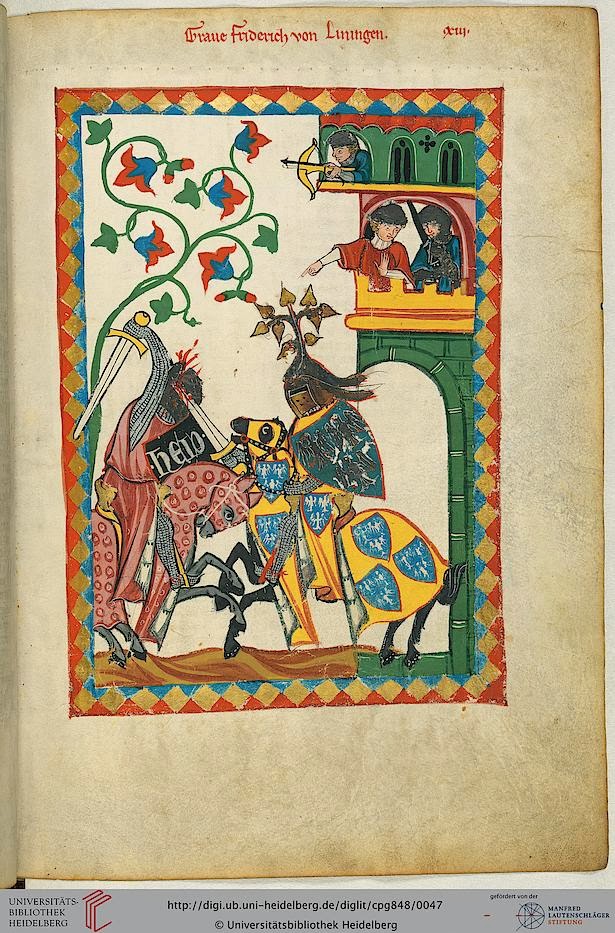 Graue Friderich von Liningen. xiij.
heıp.
UNIVERSITÄTS-
BIBLIOTHEK
HEIDELBERG
http://digi.ub.uni-heidelberg.de/diglit/cpg848/0047
© Universitätsbibliothek Heidelberg
gefördert von der
MANFRED
LAUTENSCHLÄGER
STIFTUNG